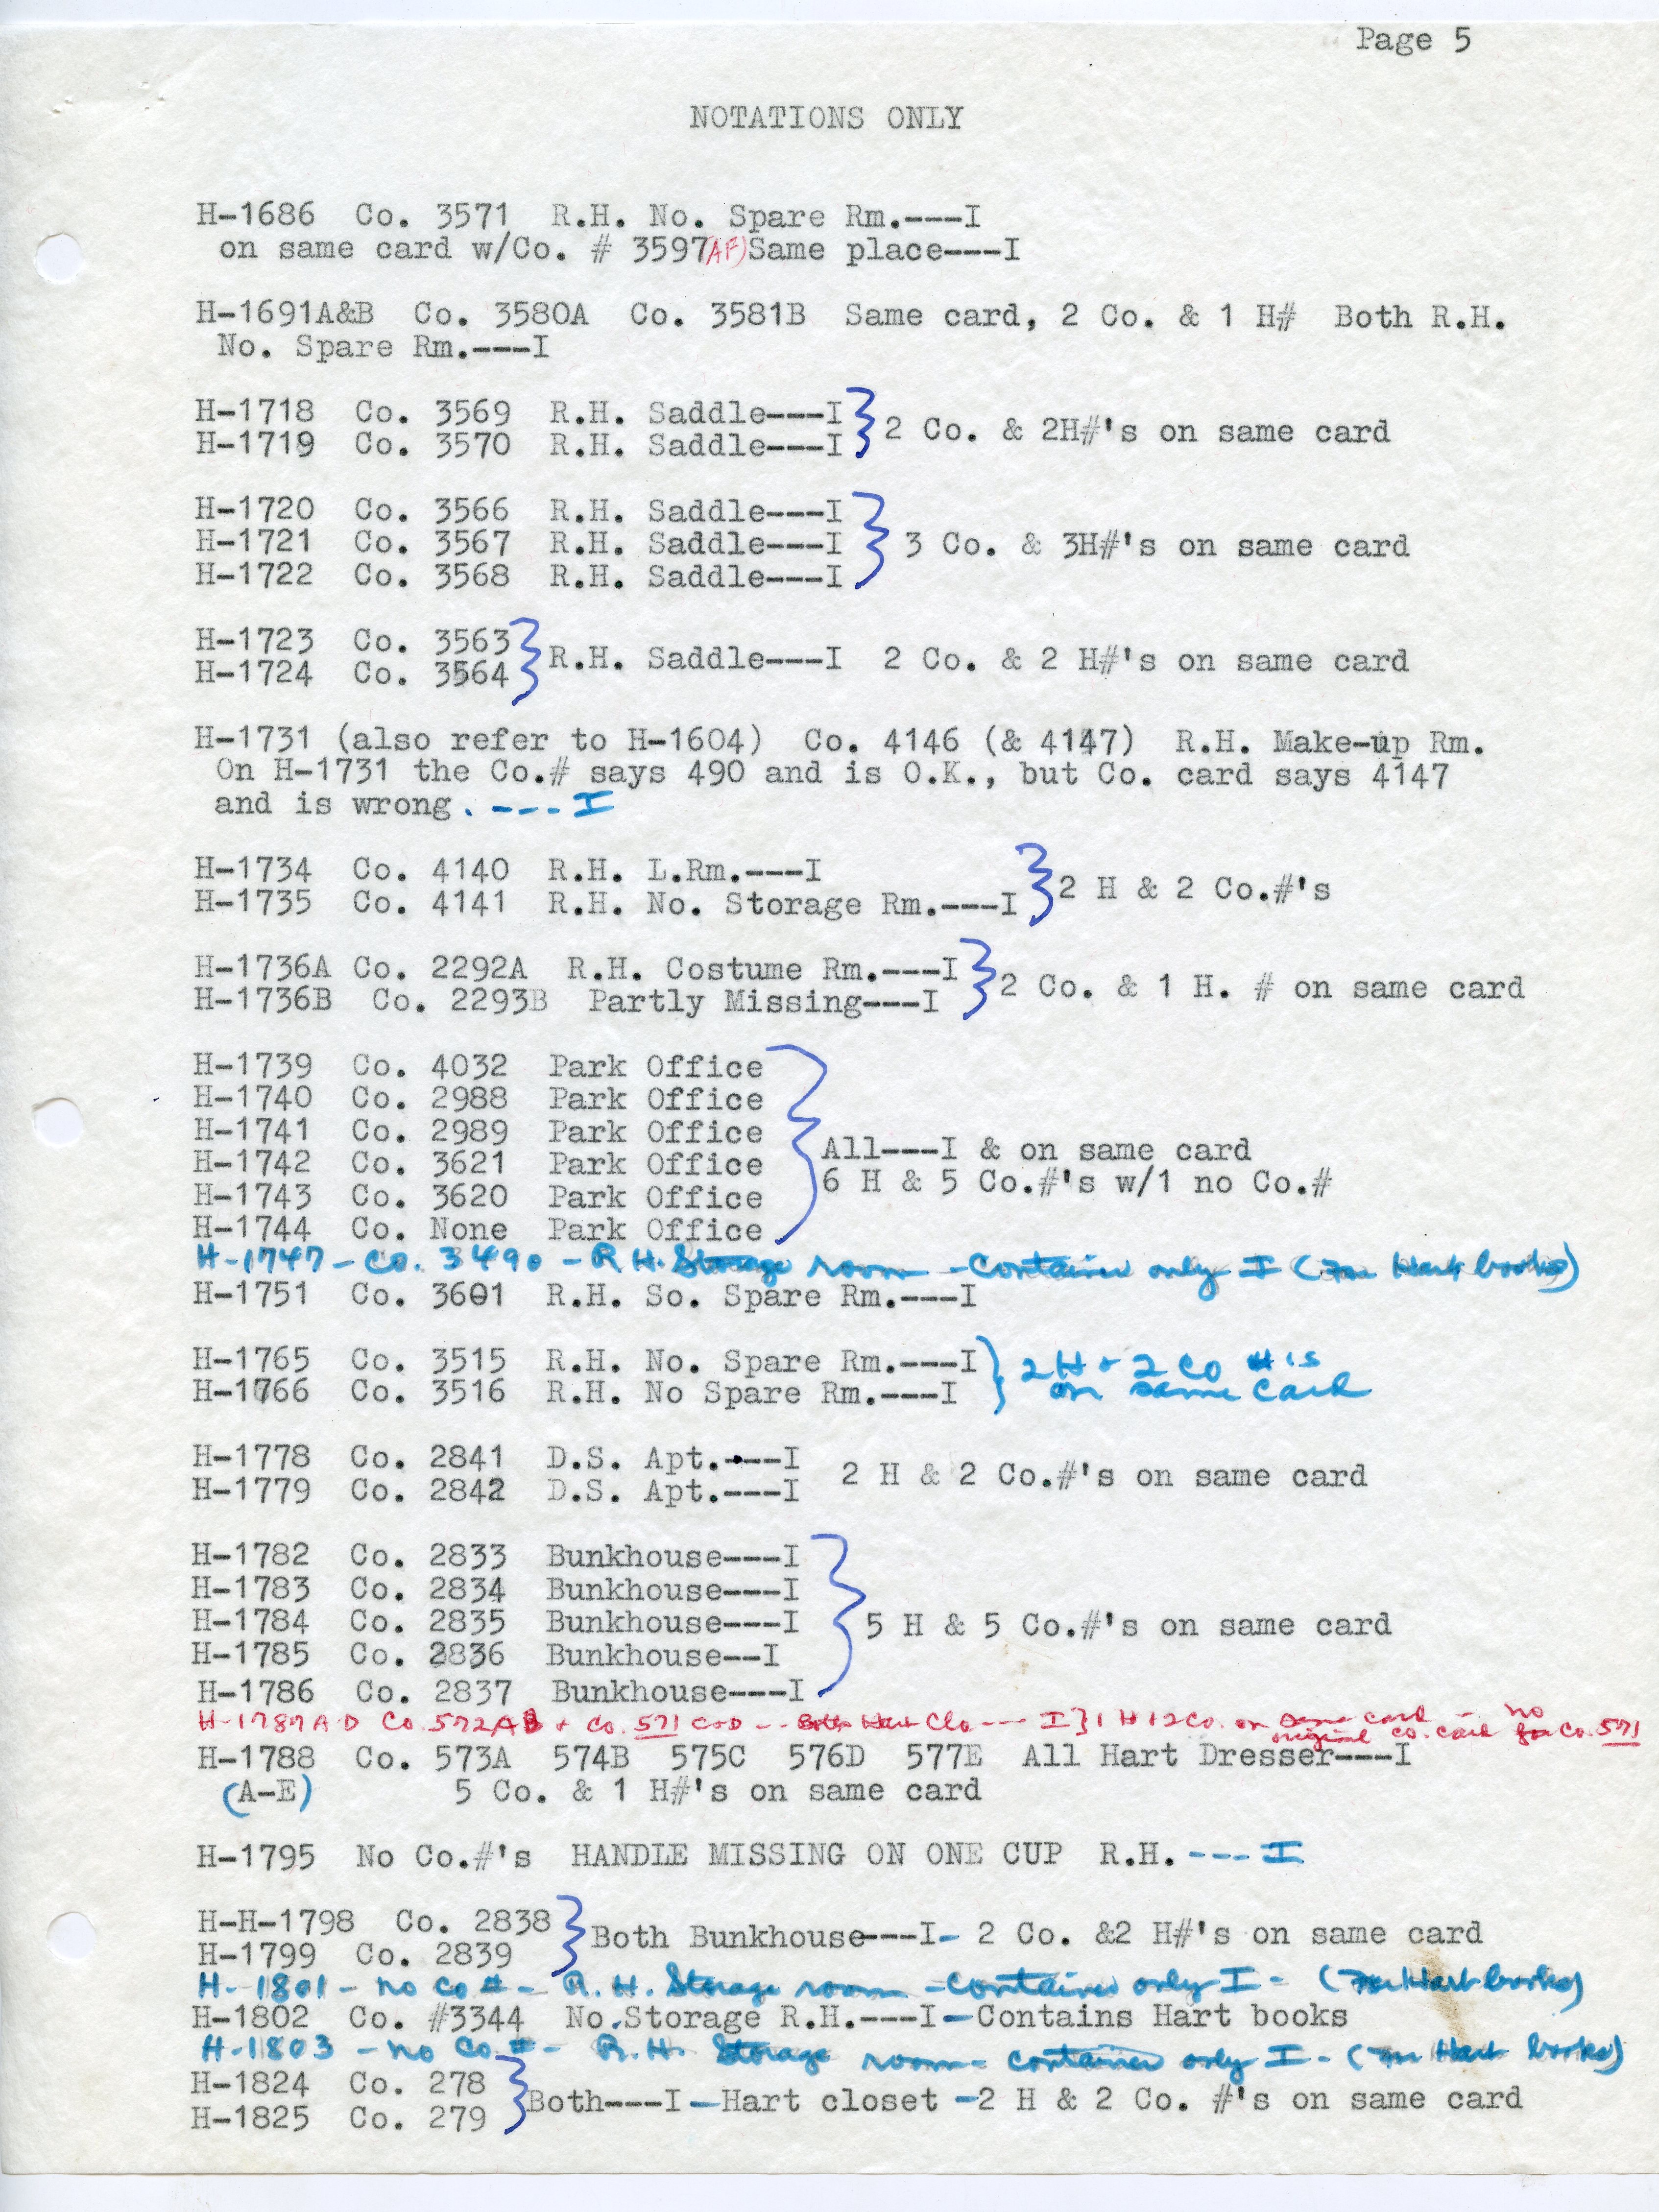 Page 5
NOTATIONS ONLY
H-1686 Co. 3571 R.H. No. Spare Rm.---I
on same card w/Co. # 3597(AF) Same place---I
H-1691A&B Co. 3580A Co. 3581B Same card, 2 Co. & 1 H# Both R.H.
No. Spare Rm.---I
H-1718 Co. 3569 R.H. Saddle---I
H-1719 Co. 3570 R.H. Saddle---I
2 Co. & 2H#'s on same card
H-1720 Co. 3566 R.H. Saddle---I
H-1721 Co. 3567 R.H. Saddle---I
H-1722 Co. 3568 R.H. Saddle---I
3 Co. & 3H#'s on same card
H-1723 Co. 3563
H-1724 Co. 3564
R.H. Saddle---I 2 Co. & 2 H#'s on same card
H-1731 (also refer to H-1604) Co. 4146 (& 4147) R.H. Make-up Rm.
On H-1731 the Co.# says 490 and is O.K., but Co. card says 4147
and is wrong. ---I
H-1734 Co. 4140 R.H. L.Rm.---I
H-1735 Co. 4141 R.H. No. Storage Rm.---I
2 H & 2 Co.#'s
H-1736A Co. 2292A R.H. Costume Rm.---I
H-1736B Co. 2293B Partly Missing---I
2 Co. & 1 H. # on same card
H-1739 Co. 4032 Park Office
H-1740 Co. 2988 Park Office
H-1741 Co. 2989 Park Office
H-1742 Co. 3621 Park Office
H-1743 Co. 3620 Park Office
H-1744 Co. None Park Office
All---I & on same card
6 H & 5 Co.#'s w/1 no Co.#
H-1747 - Co. 3490 - R.H. Storage room - Container only I (for Hart books)
H-1751 Co. 3601 R.H. So. Spare Rm.---I
H-1765 Co. 3515 R.H. No. Spare Rm.---I
H-1766 Co. 3516 R.H. No Spare Rm.---I
2 H & 2 Co #'s
on same card
H-1778 Co. 2841 D.S. Apt.---I
H-1779 Co. 2842 D.S. Apt.---I
2 H & 2 Co.#'s on same card
H-1782 Co. 2833 Bunkhouse---I
H-1783 Co. 2834 Bunkhouse---I
H-1784 Co. 2835 Bunkhouse---I
H-1785 Co. 2836 Bunkhouse--I
H-1786 Co. 2837 Bunkhouse---I
5 H & 5 Co.#'s on same card
H-1787 A-D Co. 572AB & Co. 571 C&D -- Both Hart Clo --- I } 1 H & 2 Co. on same card - no
original co. card for Co. 571
H-1788 Co. 573A 574B 575C 576D 577E All Hart Dresser---I
(A-E) 5 Co. & 1 H#'s on same card
H-1795 No Co.#'s HANDLE MISSING ON ONE CUP R.H. ---I
H-H-1798 Co. 2838
H-1799 Co. 2839
Both Bunkhouse---I- 2 Co. &2 H#'s on same card
H-1801 - no co # - R.H. Storage room - Container only I - (for Hart books)
H-1802 Co. #3344 No.Storage R.H.---I-Contains Hart books
H-1803 - no Co # - R.H. Storage room - container only I - (for Hart books)
H-1824 Co. 278
H-1825 Co. 279
Both---I-Hart closet -2 H & 2 Co. #'s on same card